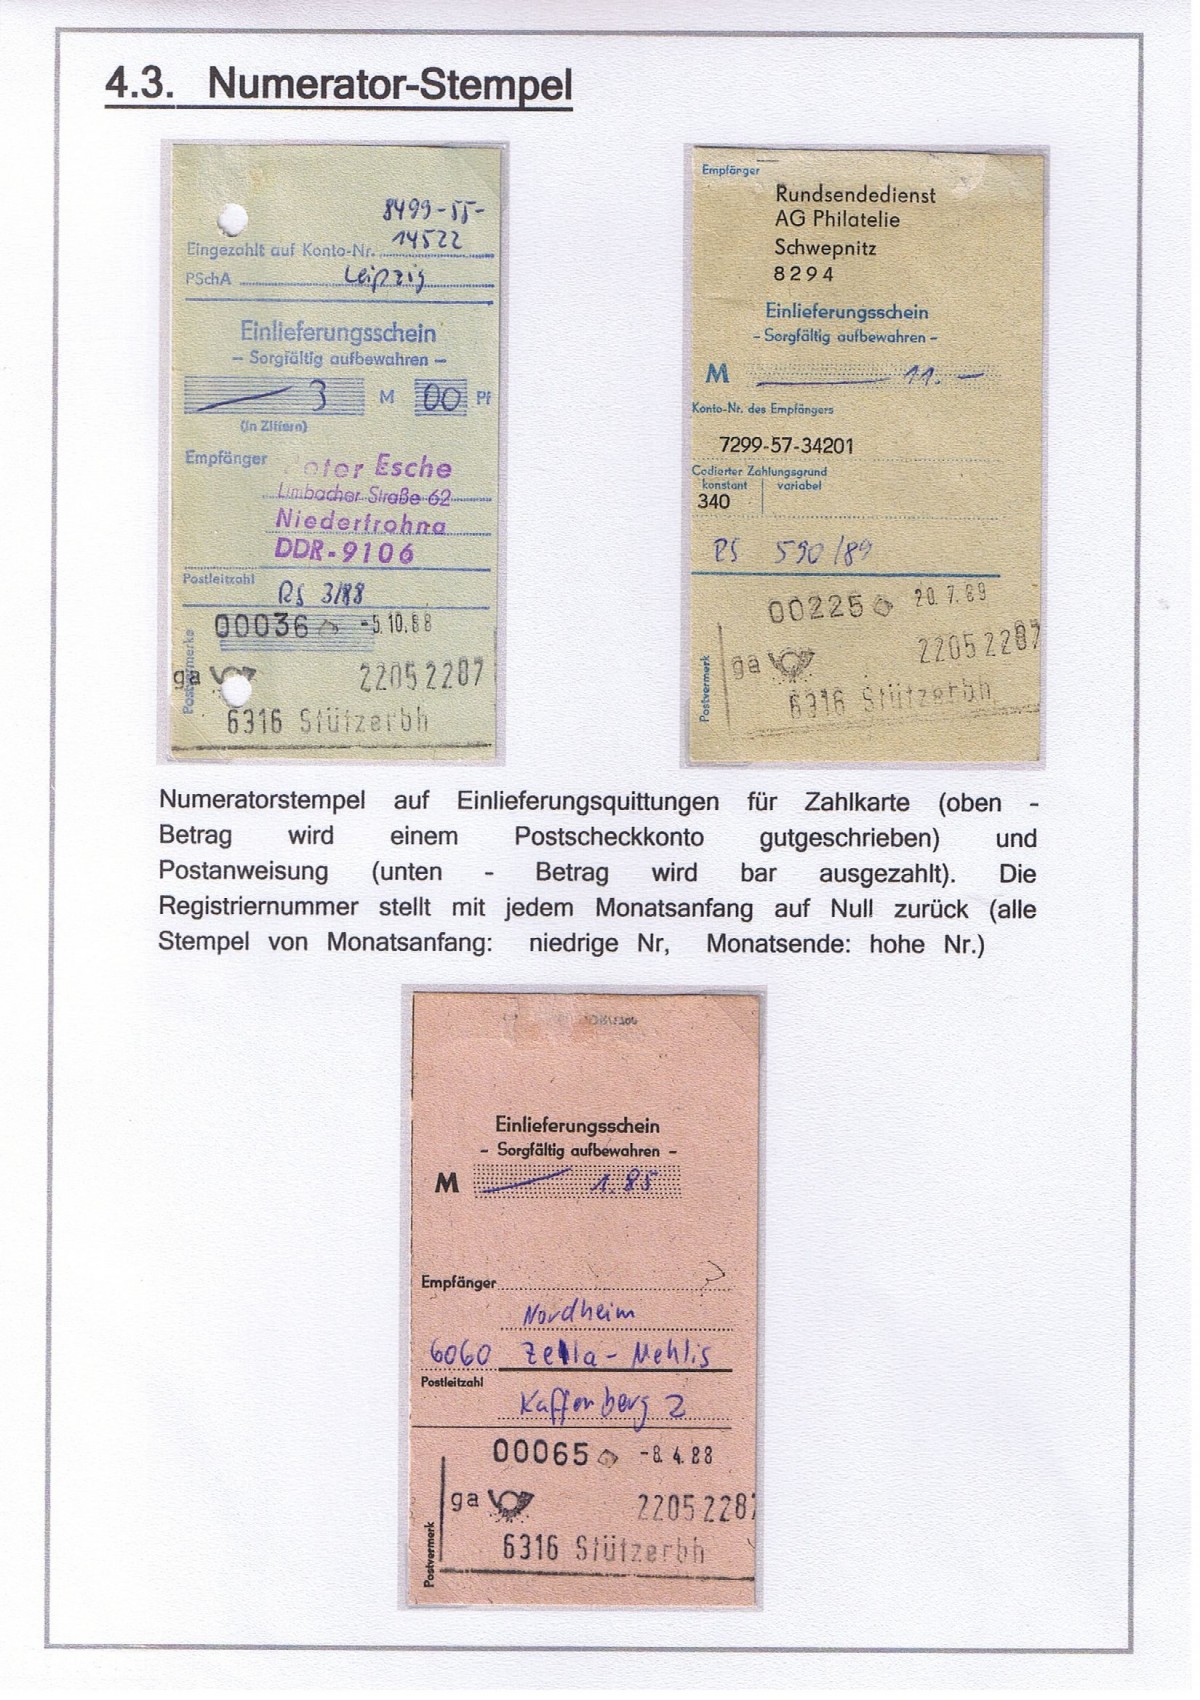 4.3. Numerator-Stempel
8499-55-
14522
Eingezahlt auf Konto-Nr.
PSchA Leipzig
Einlieferungsschein
– Sorgfältig aufbewahren –
3 M 00 Pf
(in Ziffern)
Empfänger Peter Esche
Limbacher Straße 62
Niederfrohna
DDR-9106
Postleitzahl
RS 3/88
00036 -5.10.88
Postvermerke
ga 2205 2287
6316 Stützerbh
Empfänger
Rundsendedienst
AG Philatelie
Schwepnitz
8294
Einlieferungsschein
– Sorgfältig aufbewahren –
M 11. —
Konto-Nr. des Empfängers
7299-57-34201
Codierter Zahlungsgrund
konstant variabel
340
RS 590/89
00225 20.7.89
Postvermerk
ga 2205 2287
6316 Stützerbh
Numeratorstempel auf Einlieferungsquittungen für Zahlkarte (oben -
Betrag wird einem Postscheckkonto gutgeschrieben) und
Postanweisung (unten - Betrag wird bar ausgezahlt). Die
Registriernummer stellt mit jedem Monatsanfang auf Null zurück (alle
Stempel von Monatsanfang: niedrige Nr, Monatsende: hohe Nr.)
Einlieferungsschein
– Sorgfältig aufbewahren –
M 1.85
Empfänger
Nordheim
6060 Zella-Mehlis
Postleitzahl
Kaffenberg 2
00065 -8.4.88
Postvermerk
ga 2205 2287
6316 Stützerbh